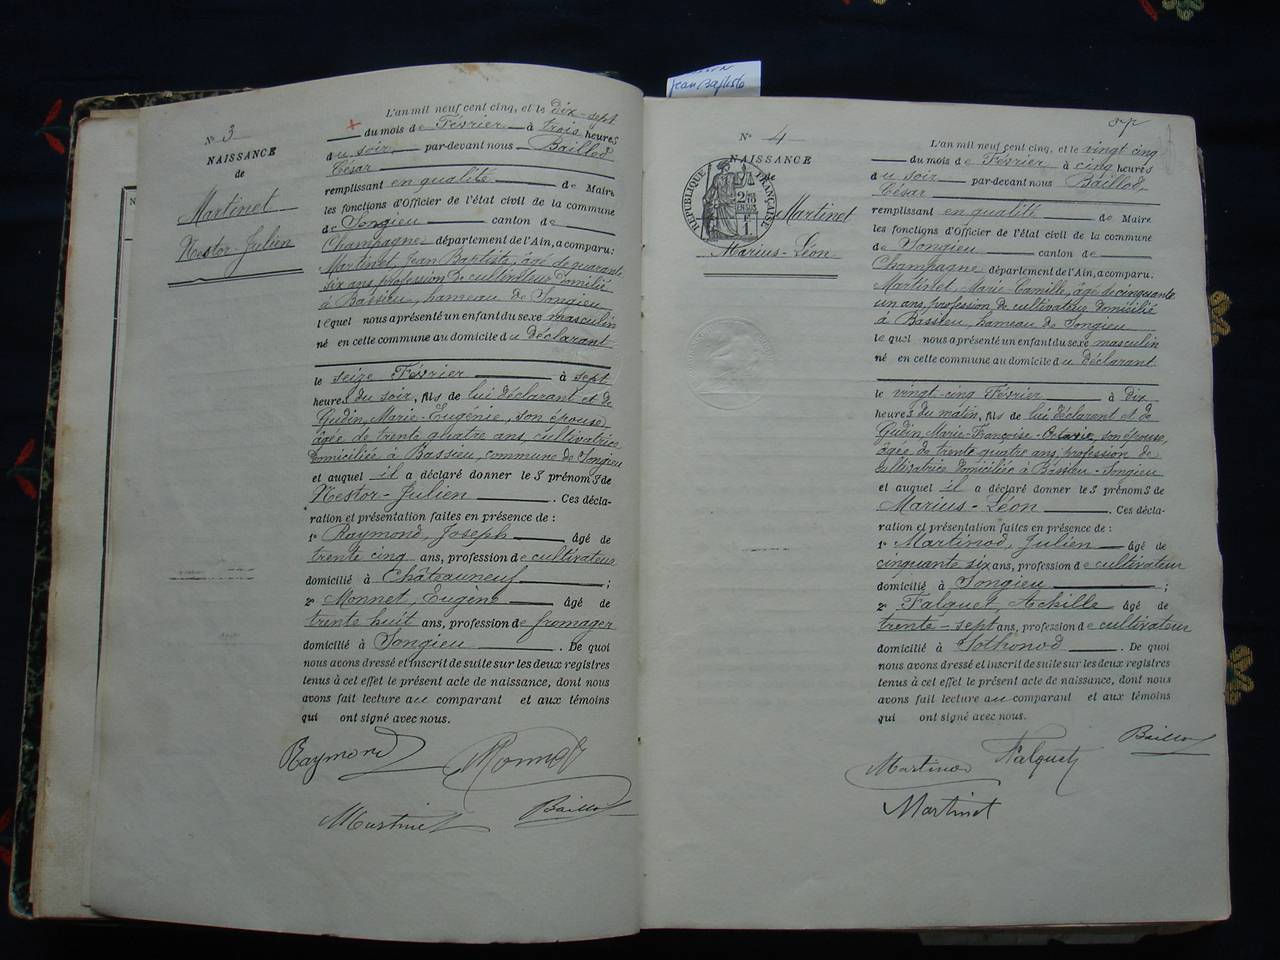 Jean Baptiste
N° 3
NAISSANCE
de
Martinet
Nestor-Julien
L'an mil neuf cent cinq, et le dix-sept
du mois de Février à trois heures
du soir par-devant nous Baillod
César
remplissant en qualité de Maire
les fonctions d'Officier de l'état civil de la commune
de Songieu canton de
Champagne département de l'Ain, a comparu:
Martinet, Jean Baptiste, âgé de quarante
six ans, profession de cultivateur domilié
à Bassieu, hameau de Songieu
lequel nous a présenté un enfant du sexe masculin
né en cette commune au domicile du déclarant
le seize Février à sept
heures du soir, fils de lui déclarant et de
Gudin, Marie-Eugénie, son épouse,
âgée de trente quatre ans, cultivatrice
domiciliée à Bassieu, commune de Songieu
et auquel il a déclaré donner les prénoms de
Nestor-Julien. Ces décla-
ration et présentation faites en présence de :
1° Raymond, Joseph âgé de
trente cinq ans, profession de cultivateur
domicilié à Châteauneuf ;
2° Monnet, Eugène âgé de
trente huit ans, profession de fromager
domicilié à Songieu. De quoi
nous avons dressé et inscrit de suite sur les deux registres
tenus à cet effet le présent acte de naissance, dont nous
avons fait lecture au comparant et aux témoins
qui ont signé avec nous.
Raymond Monnet
Martinet Baillod
N° 4
NAISSANCE
de
RÉPUBLIQUE FRANÇAISE
Martinet
Marius-Léon
L'an mil neuf cent cinq, et le vingt cinq
du mois de Février à cinq heures
du soir par-devant nous Baillod
César
remplissant en qualité de Maire
les fonctions d'Officier de l'état civil de la commune
de Songieu canton de
Champagne département de l'Ain, a comparu:
Martinet, Marie Camille, âgé de cinquante
un ans, profession de cultivateur domicilié
à Bassieu, hameau de Songieu
lequel nous a présenté un enfant du sexe masculin
né en cette commune au domicile du déclarant
le vingt-cinq Février à dix
heures du matin, fils de lui déclarant et de
Gudin Marie-Françoise-Octavie, son épouse,
âgée de trente quatre ans, profession de
cultivatrice domiciliée à Bassieu-Songieu
et auquel il a déclaré donner les prénoms de
Marius-Léon. Ces décla-
ration et présentation faites en présence de :
1° Martinod, Julien âgé de
cinquante six ans, profession de cultivateur
domicilié à Songieu ;
2° Falquet, Achille âgé de
trente-sept ans, profession de cultivateur
domicilié à Sothonod. De quoi
nous avons dressé et inscrit de suite sur les deux registres
tenus à cet effet le présent acte de naissance, dont nous
avons fait lecture au comparant et aux témoins
qui ont signé avec nous.
Baillod
Martinod Falquet
Martinet